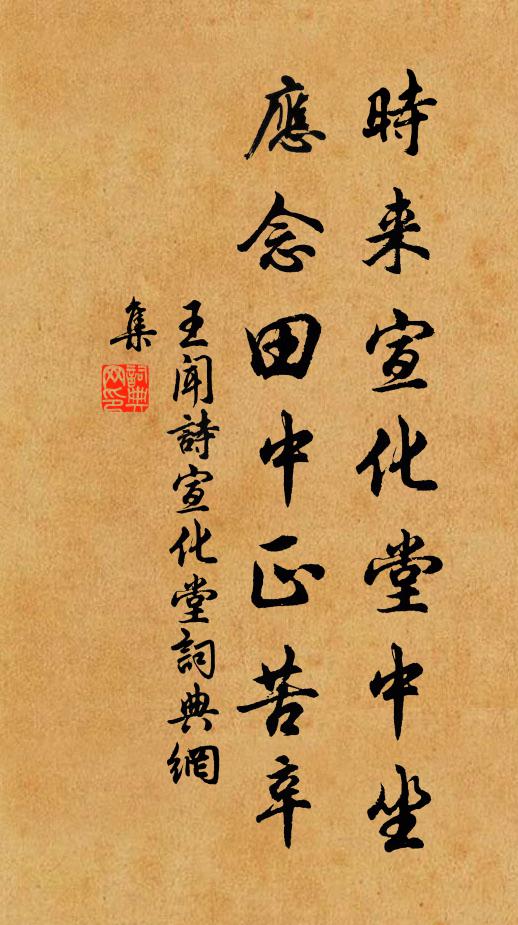 時来宣化堂中坐
應念田中正苦辛
王聞詩宣化堂詞典網
集
詞典
网印